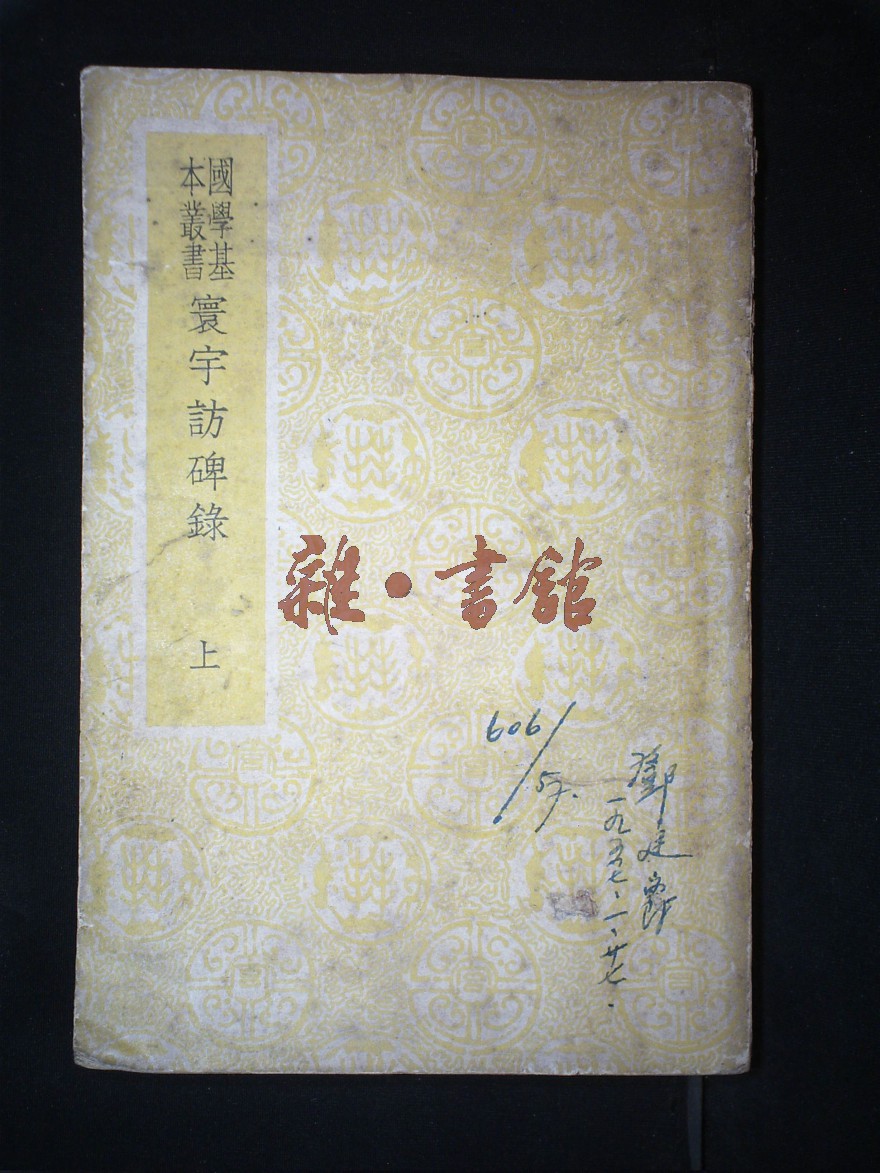 國學基
本叢書
寰宇訪碑錄
上
雜·書館
606/57.
鄧廷爵
一九五七.一.廿七.